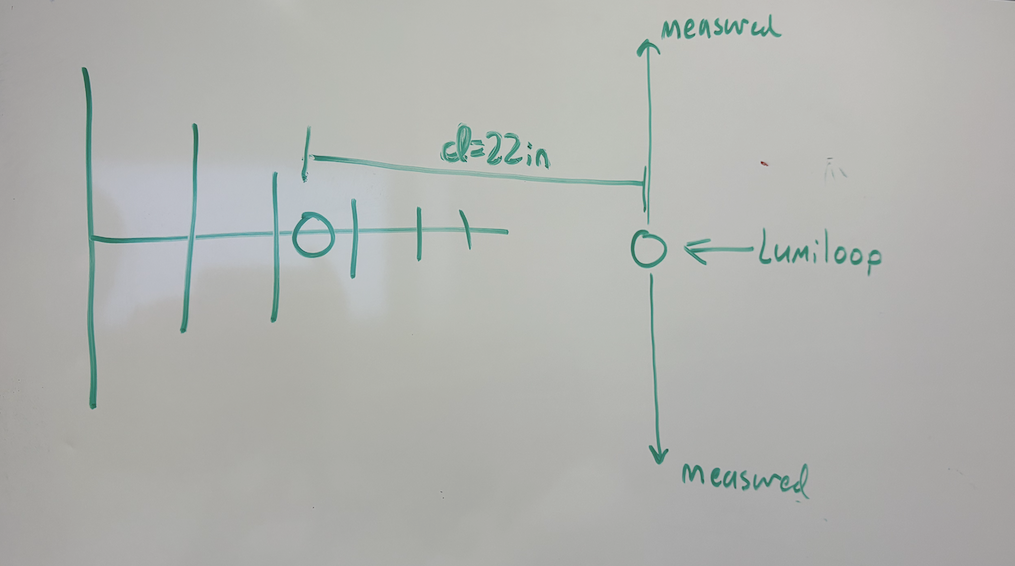 measured
d=22in
Lumiloop
measured